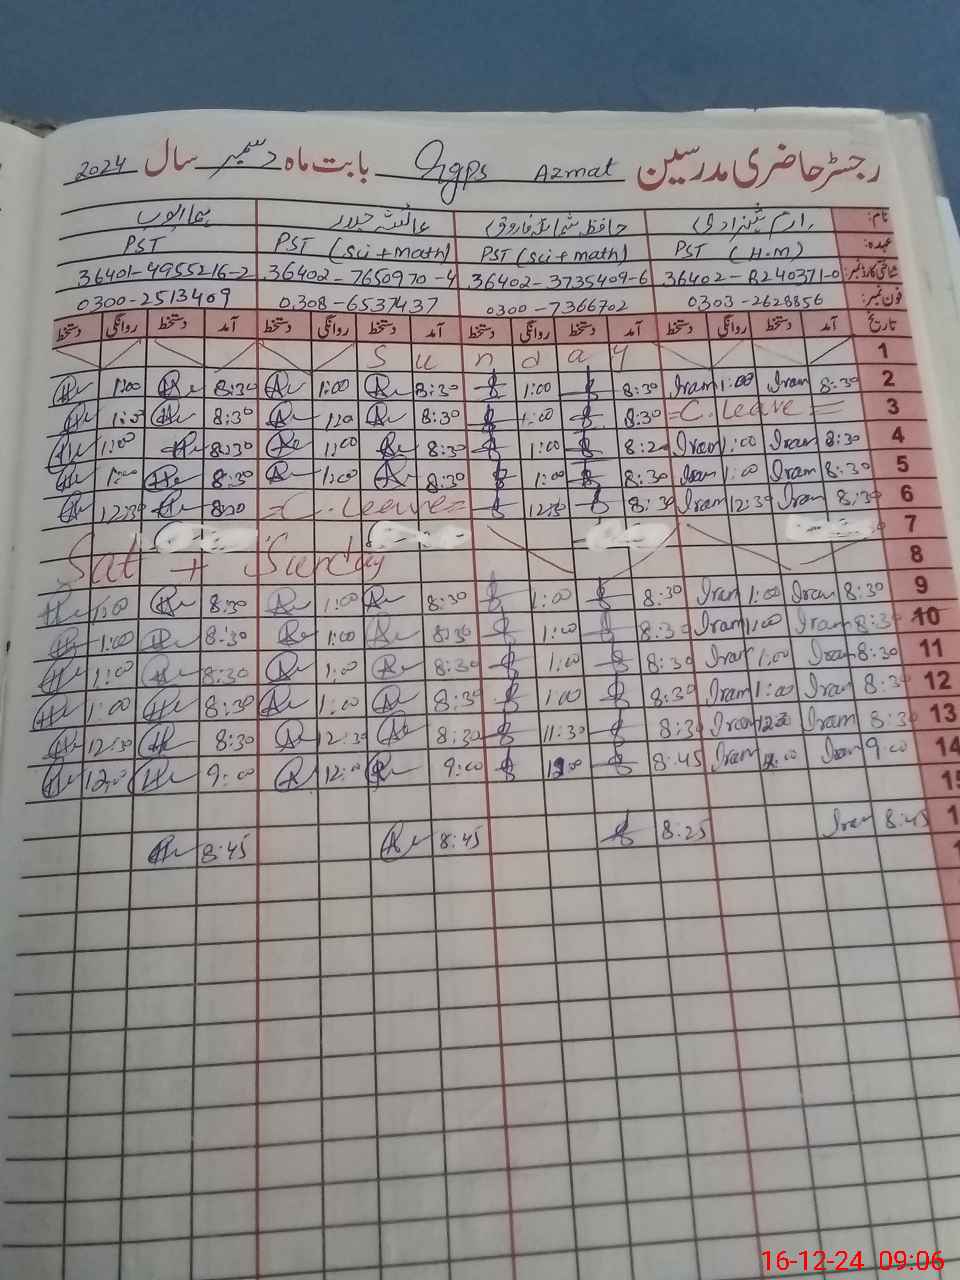 رجسٹر حاضری مدرسین Azmat Ggps بابت ماہ دسمبر سال 2024
نام: ارم شہزادی حافظہ شمائلہ فاروق عائشہ حیدر
عہدہ: PST (H.M) PST (Sci+math) PST (Sci+Math) PST
شناختی کارڈ نمبر: 36402-8240371-0 36402-3735409-6 36402-7650970-4 36401-4955216-2
فون نمبر: 0303-2628856 0300-7366702 0308-6537437 0300-2513409
تاریخ آمد دستخط روانگی دستخط آمد دستخط روانگی دستخط آمد دستخط روانگی دستخط آمد دستخط روانگی دستخط
1 Sunday
2 8:30 Iram 1:00 Iram 8:30 1:00 8:30 1:00 8:30 1:00
3 =C. Leave= 8:30 1:00 8:30 1:0 8:30 1:00
4 8:30 Iram 1:00 Iram 8:20 1:00 8:30 1:00 8:30 1:00
5 8:30 Iram 1:00 Iram 8:30 1:00 8:30 1:00 8:30 1:00
6 8:30 Iram 12:30 Iram 8:30 12:30 =C. Leave= 8:30 12:30
7
8 Sat + Sunday
9 8:30 Iram 1:00 Iram 8:30 1:00 8:30 1:00 8:30 1:00
10 8:30 Iram 1:00 Iram 8:30 1:00 8:30 1:00 8:30 1:00
11 8:30 Iram 1:00 Iram 8:30 1:00 8:30 1:00 8:30 1:00
12 8:30 Iram 1:00 Iram 8:30 1:00 8:30 1:00 8:30 1:00
13 8:30 Iram Iram 8:30 11:30 8:30 12:30 8:30 12:30
14 9:00 Iram Iram 8:45 9:00 12:00 9:00 12:00
15
8:45 Iram 8:25 8:45 8:45
16-12-24 09:06